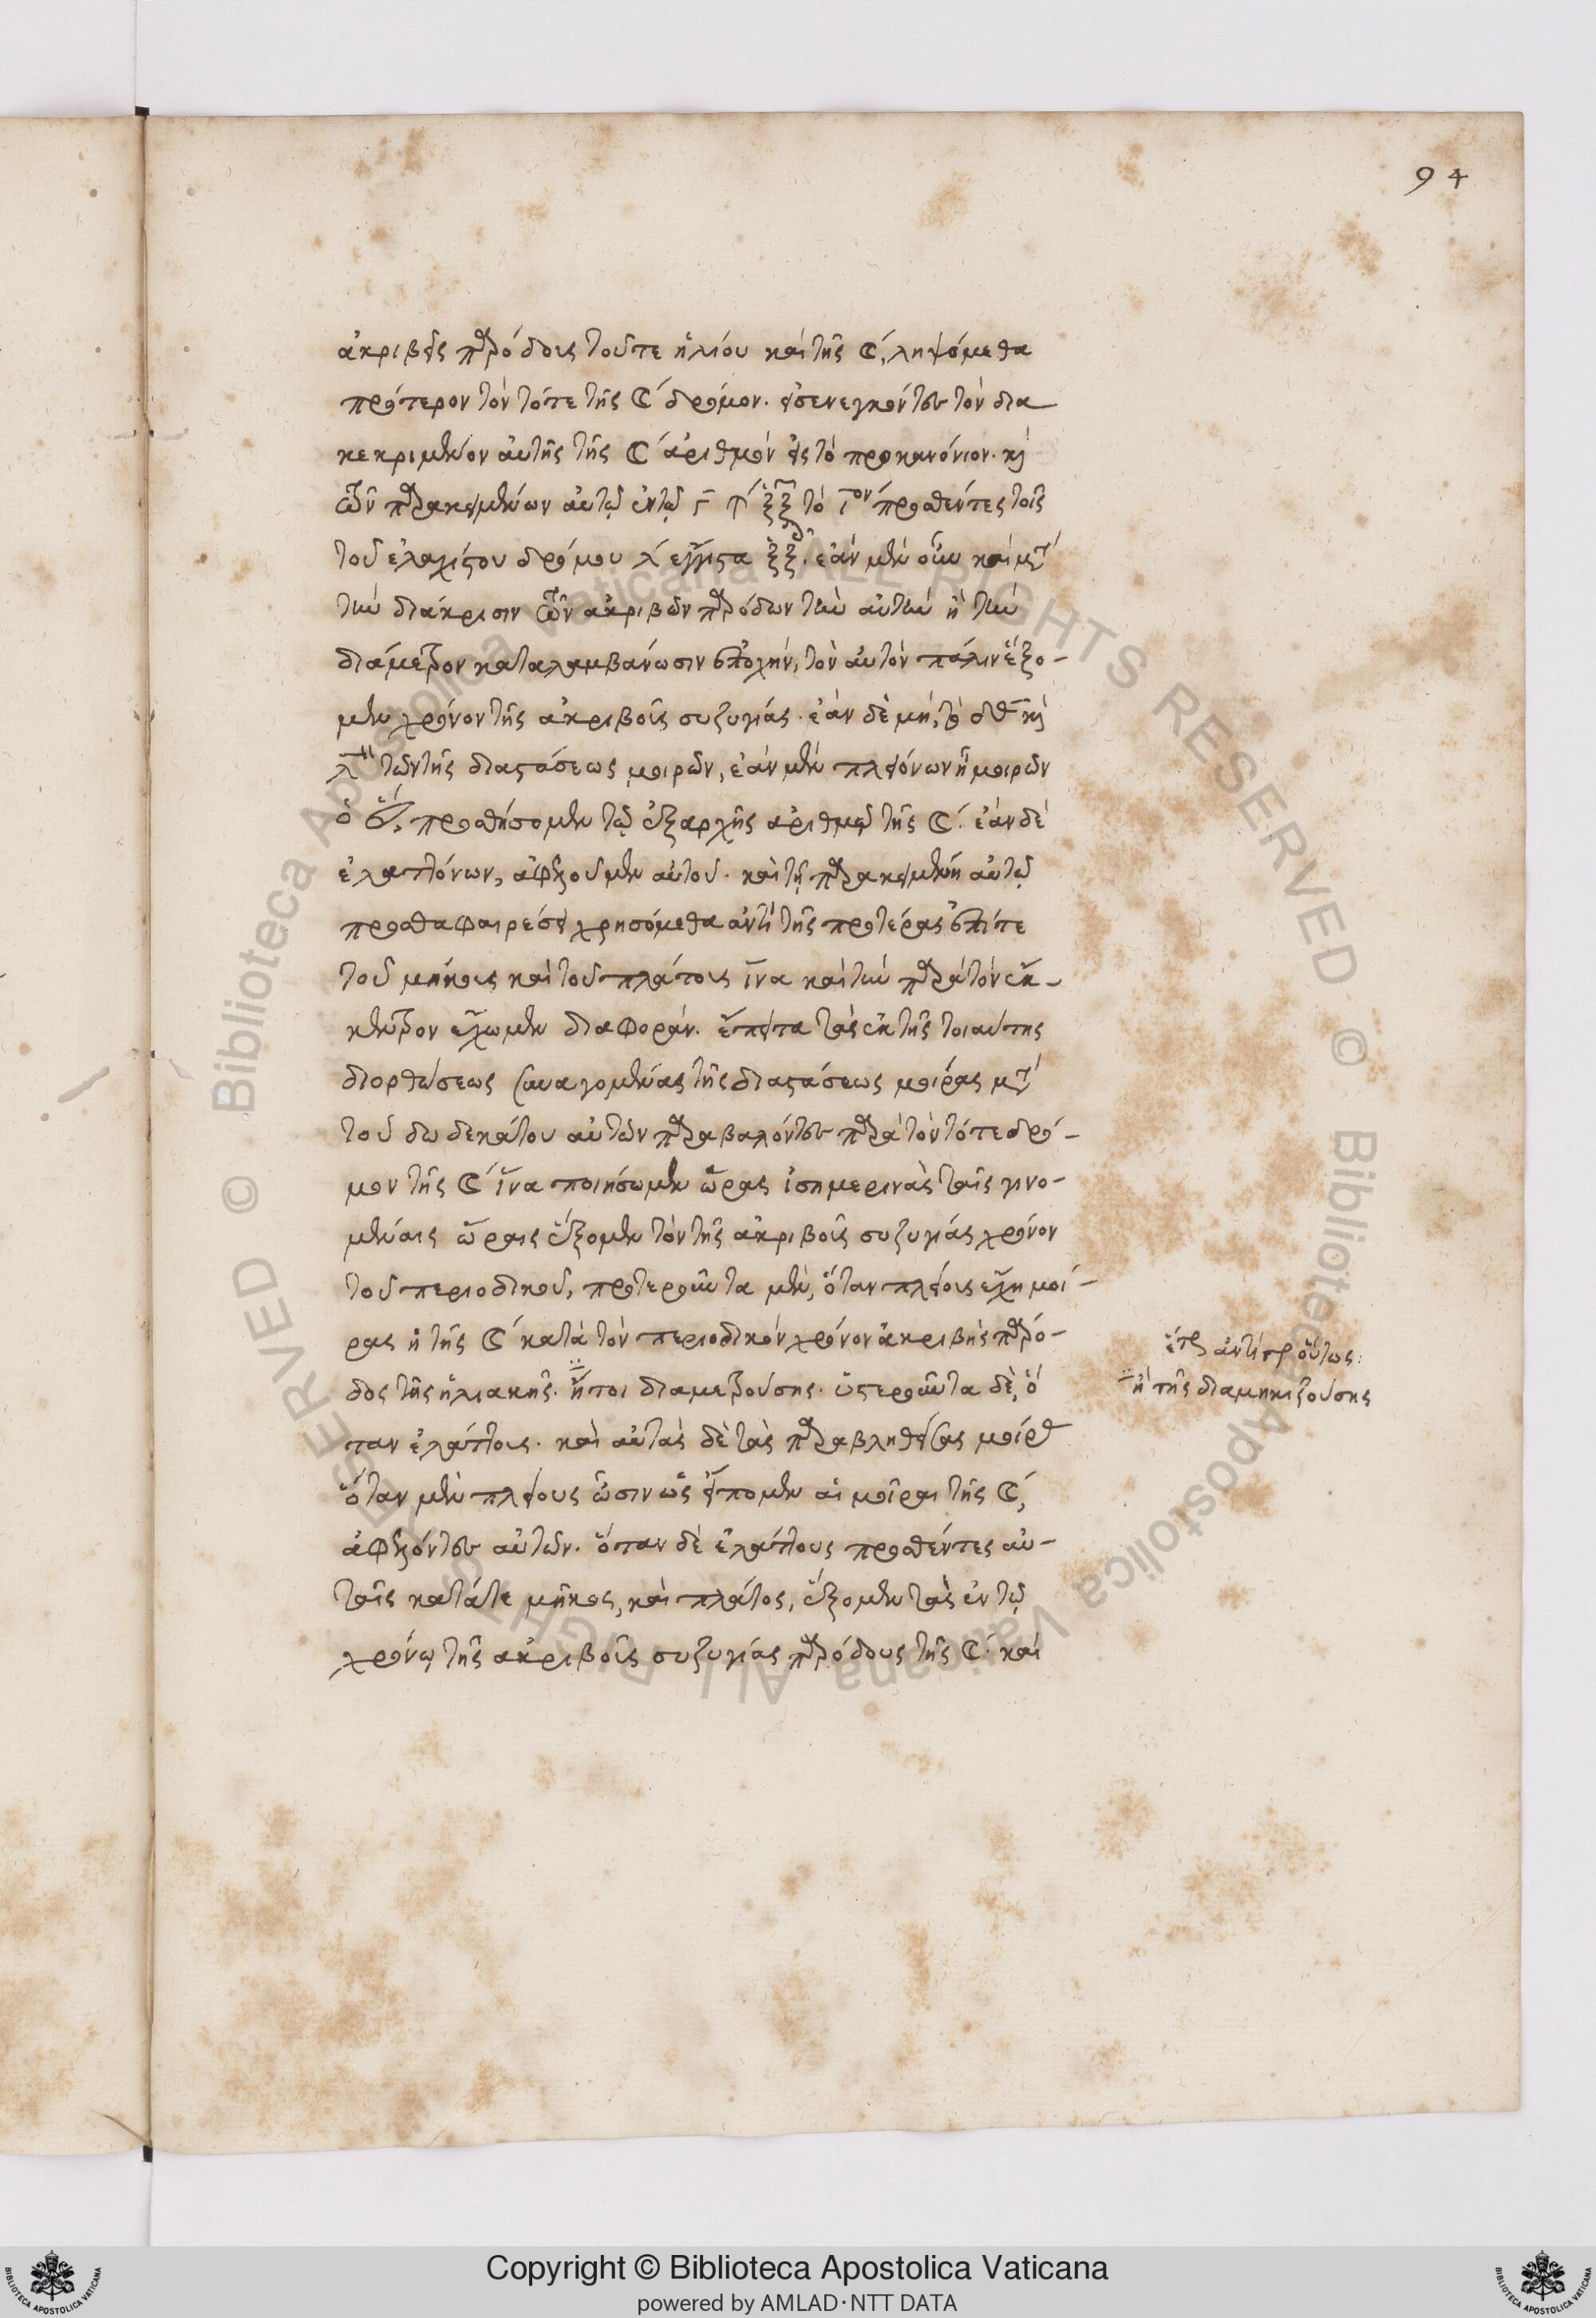 94
ἀκριβεῖς παρόδους τοῦ τε ἡλίου καὶ τῆς ☾, ληψόμεθα
πρότερον τὸν τότε τῆς ☾ δρόμον. εἰσενεγκόντες τὸν δια
κεκριμένον αὐτῆς τῆς ☾ ἀριθμὸν εἰς τὸ προκανόνιον. κὶ
τῶν παρακειμένων αὐτῷ ἐν τῷ γ ξξ τὸ προσθέντες τοῖς
τοῦ ἐλαχίστου δρόμου λ ἔγγιστα ξξ. ἐὰν μὲν οὖν καὶ μετὰ
τὴν διάκρισιν τῶν ἀκριβῶν παρόδων τὴν αὐτὴν ἢ τὴν
διάμετρον καταλαμβάνωσιν ἐποχήν, τὸν αὐτὸν πάλιν ἕξο-
μεν χρόνον τῆς ἀκριβοῦς συζυγίας. ἐὰν δὲ μή, τὸ κὶ
τῶν τῆς διαστάσεως μοιρῶν, ἐὰν μὲν πλειόνων ἢ μοιρῶν
ὁ προσθήσομεν τῷ ἐξαρχῆς ἀριθμῷ τῆς ☾. ἐὰν δὲ
ἐλαττόνων, ἀφελοῦμεν αὐτοῦ. καὶ τῇ παρακειμένῃ αὐτῷ
προσθαφαιρέσει χρησόμεθα ἀντὶ τῆς προτέρας ἐπί τε
τοῦ μήκους καὶ τοῦ πλάτους ἵνα καὶ τὴν παρὰ τὸν ἔκ-
κεντρον ἔχωμεν διαφοράν. ἔπειτα τὰς ἐκ τῆς τοιαύτης
διορθώσεως συναγομένας τῆς διαστάσεως μοίρας μετὰ
τοῦ δωδεκάτου αὐτῶν παραβαλόντες παρὰ τὸν τότε δρό-
μον τῆς ☾ ἵνα ποιήσωμεν ὥρας ἰσημερινὰς ταῖς γινο-
μέναις ὥραις ἕξομεν τὸν τῆς ἀκριβοῦς συζυγίας χρόνον
τοῦ περιοδικοῦ, προτεροῦντα μὲν, ὅταν πλείους ἔχῃ μοί-
ρας ἡ τῆς ☾ κατὰ τὸν περιοδικὸν χρόνον ἀκριβὴς πάρο-
δος τῆς ἡλιακῆς. ἤτοι διαμετρούσης. ὑστεροῦντα δὲ, ὅ
ταν ἐλάττους. καὶ αὐτὰς δὲ τὰς παραβληθείσας μοίρας
ὅταν μὲν πλείους ὦσιν ὡς εἴπομεν αἱ μοῖραι τῆς ☾,
ἀφελόντες αὐτῶν. ὅταν δὲ ἐλάττους προσθέντες αὐ-
ταῖς κατά τε μῆκος, καὶ πλάτος, ἕξομεν τὰς ἐν τῷ
χρόνῳ τῆς ἀκριβοῦς συζυγίας παρόδους τῆς ☾. καὶ
ἀντίγρ οὕτως:
ἢ τῆς διαμηκιζούσης